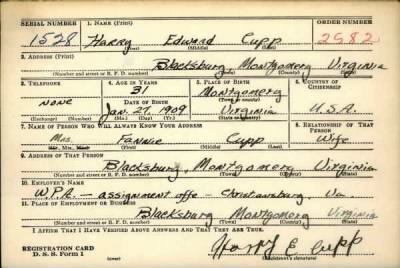 SERIAL NUMBER 1. NAME (Print) ORDER NUMBER
1528 Harry Edward Cupp 2982
(First) (Middle) (Last)
2. ADDRESS (Print)
Blacksburg, Montgomery Virginia
(Number and street or R. F. D. number) (Town) (County) (State)
3. TELEPHONE 4. AGE IN YEARS 5. PLACE OF BIRTH 6. COUNTRY OF CITIZENSHIP
31 Montgomery
none DATE OF BIRTH (Town or county)
Jan. 27, 1909 Virginia U.S.A.
(Exchange) (Number) (Mo.) (Day) (Yr.) (State or country)
7. NAME OF PERSON WHO WILL ALWAYS KNOW YOUR ADDRESS 8. RELATIONSHIP OF THAT PERSON
Mrs. Fannie Cupp Wife
(Mr., Mrs., Miss) (First) (Middle) (Last)
9. ADDRESS OF THAT PERSON
Blacksburg, Montgomery Virginia
(Number and street or R. F. D. number) (Town) (County) (State)
10. EMPLOYER'S NAME
W.P.A. – assignment offe – Christiansburg, Va.
11. PLACE OF EMPLOYMENT OR BUSINESS
Blacksburg Montgomery Virginia
(Number and street or R. F. D. number) (Town) (County) (State)
I AFFIRM THAT I HAVE VERIFIED ABOVE ANSWERS AND THAT THEY ARE TRUE.
REGISTRATION CARD Harry E Cupp
D. S. S. Form 1 (over) (Registrant's signature)